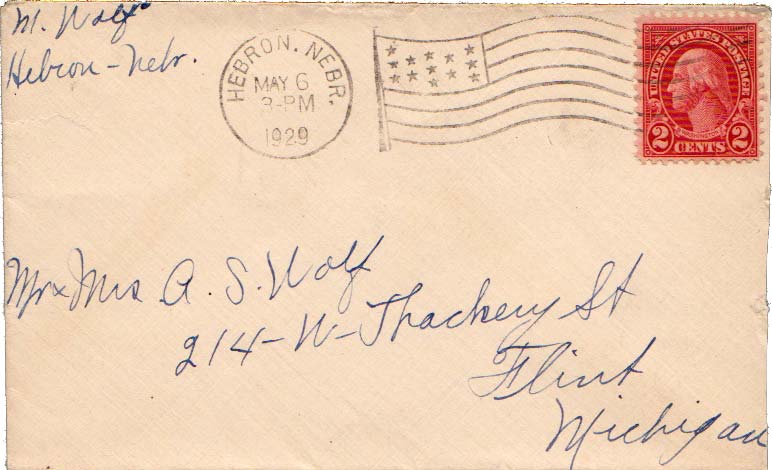 M. Wolf
Hebron - Nebr.
HEBRON, NEBR.
MAY 6
3-PM
1929
UNITED STATES POSTAGE
WASHINGTON
2 CENTS 2
Mr & Mrs A. S. Wolf
214-W-Thackery St
Flint
Michigan